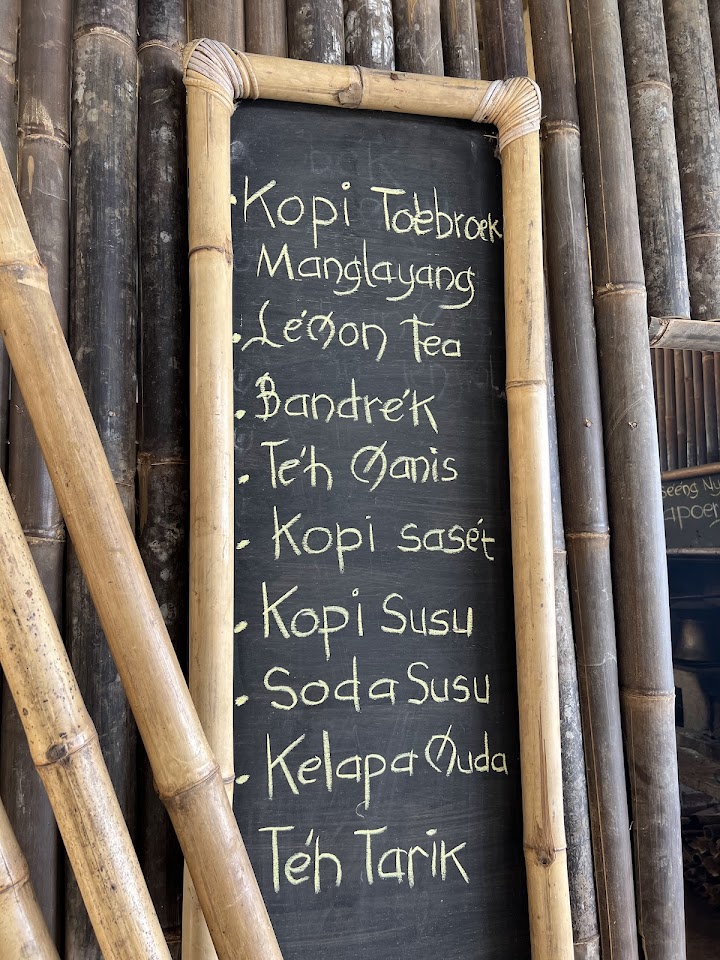 • Kopi Toebroek
Manglayang
• Lémon Tea
• Bandrék
• Téh Manis
• Kopi sasét
• Kopi Susu
• Soda Susu
• Kelapa Muda
Téh Tarik